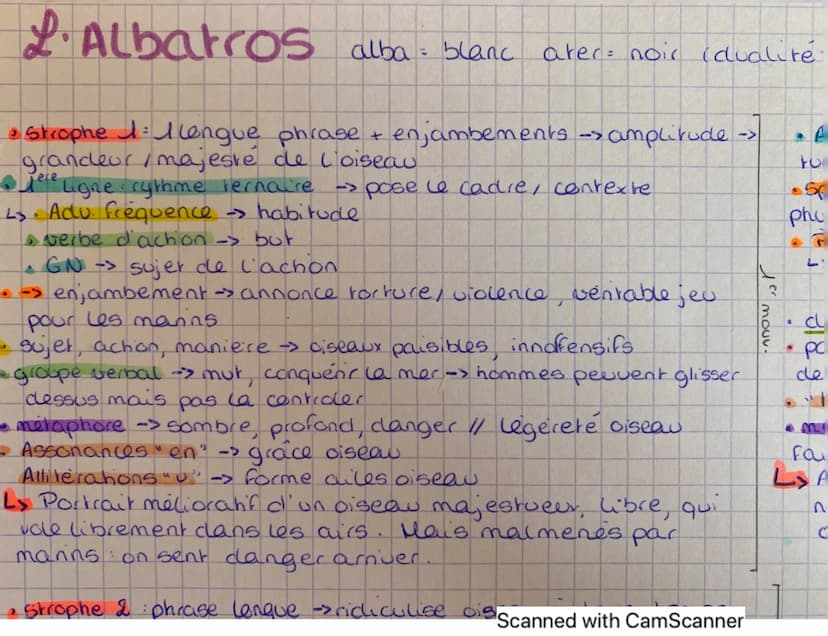 L'Albatros alba = blanc ater = noir (dualité
• Strophe 1 : 1 longue phrase + enjambements -> amplitude ->
grandeur / majesté de l'oiseau
• 1ère ligne : rythme ternaire -> pose le cadre, contexte
↳ • Adv. fréquence -> habitude
• verbe d'action -> but
• GN -> sujet de l'action
• -> enjambement -> annonce torture, violence, véritable jeu
pour les marins
• sujet, action, manière -> oiseaux paisibles, innofensifs
• groupe verbal -> mvt, conquérir la mer -> hommes peuvent glisser
dessus mais pas la controler
• métaphore -> sombre, profond, danger // légèreté oiseau
• Assonances "en" -> grâce oiseau
Allitérations "v" -> forme ailes oiseau
↳ Portrait mélioratif d'un oiseau majestueux, libre, qui
vole librement dans les airs. Mais malmenés par
marins : on sent danger arriver.
1er mouv.
• Strophe 2 : phrase longue -> ridiculise
Scanned with CamScanner